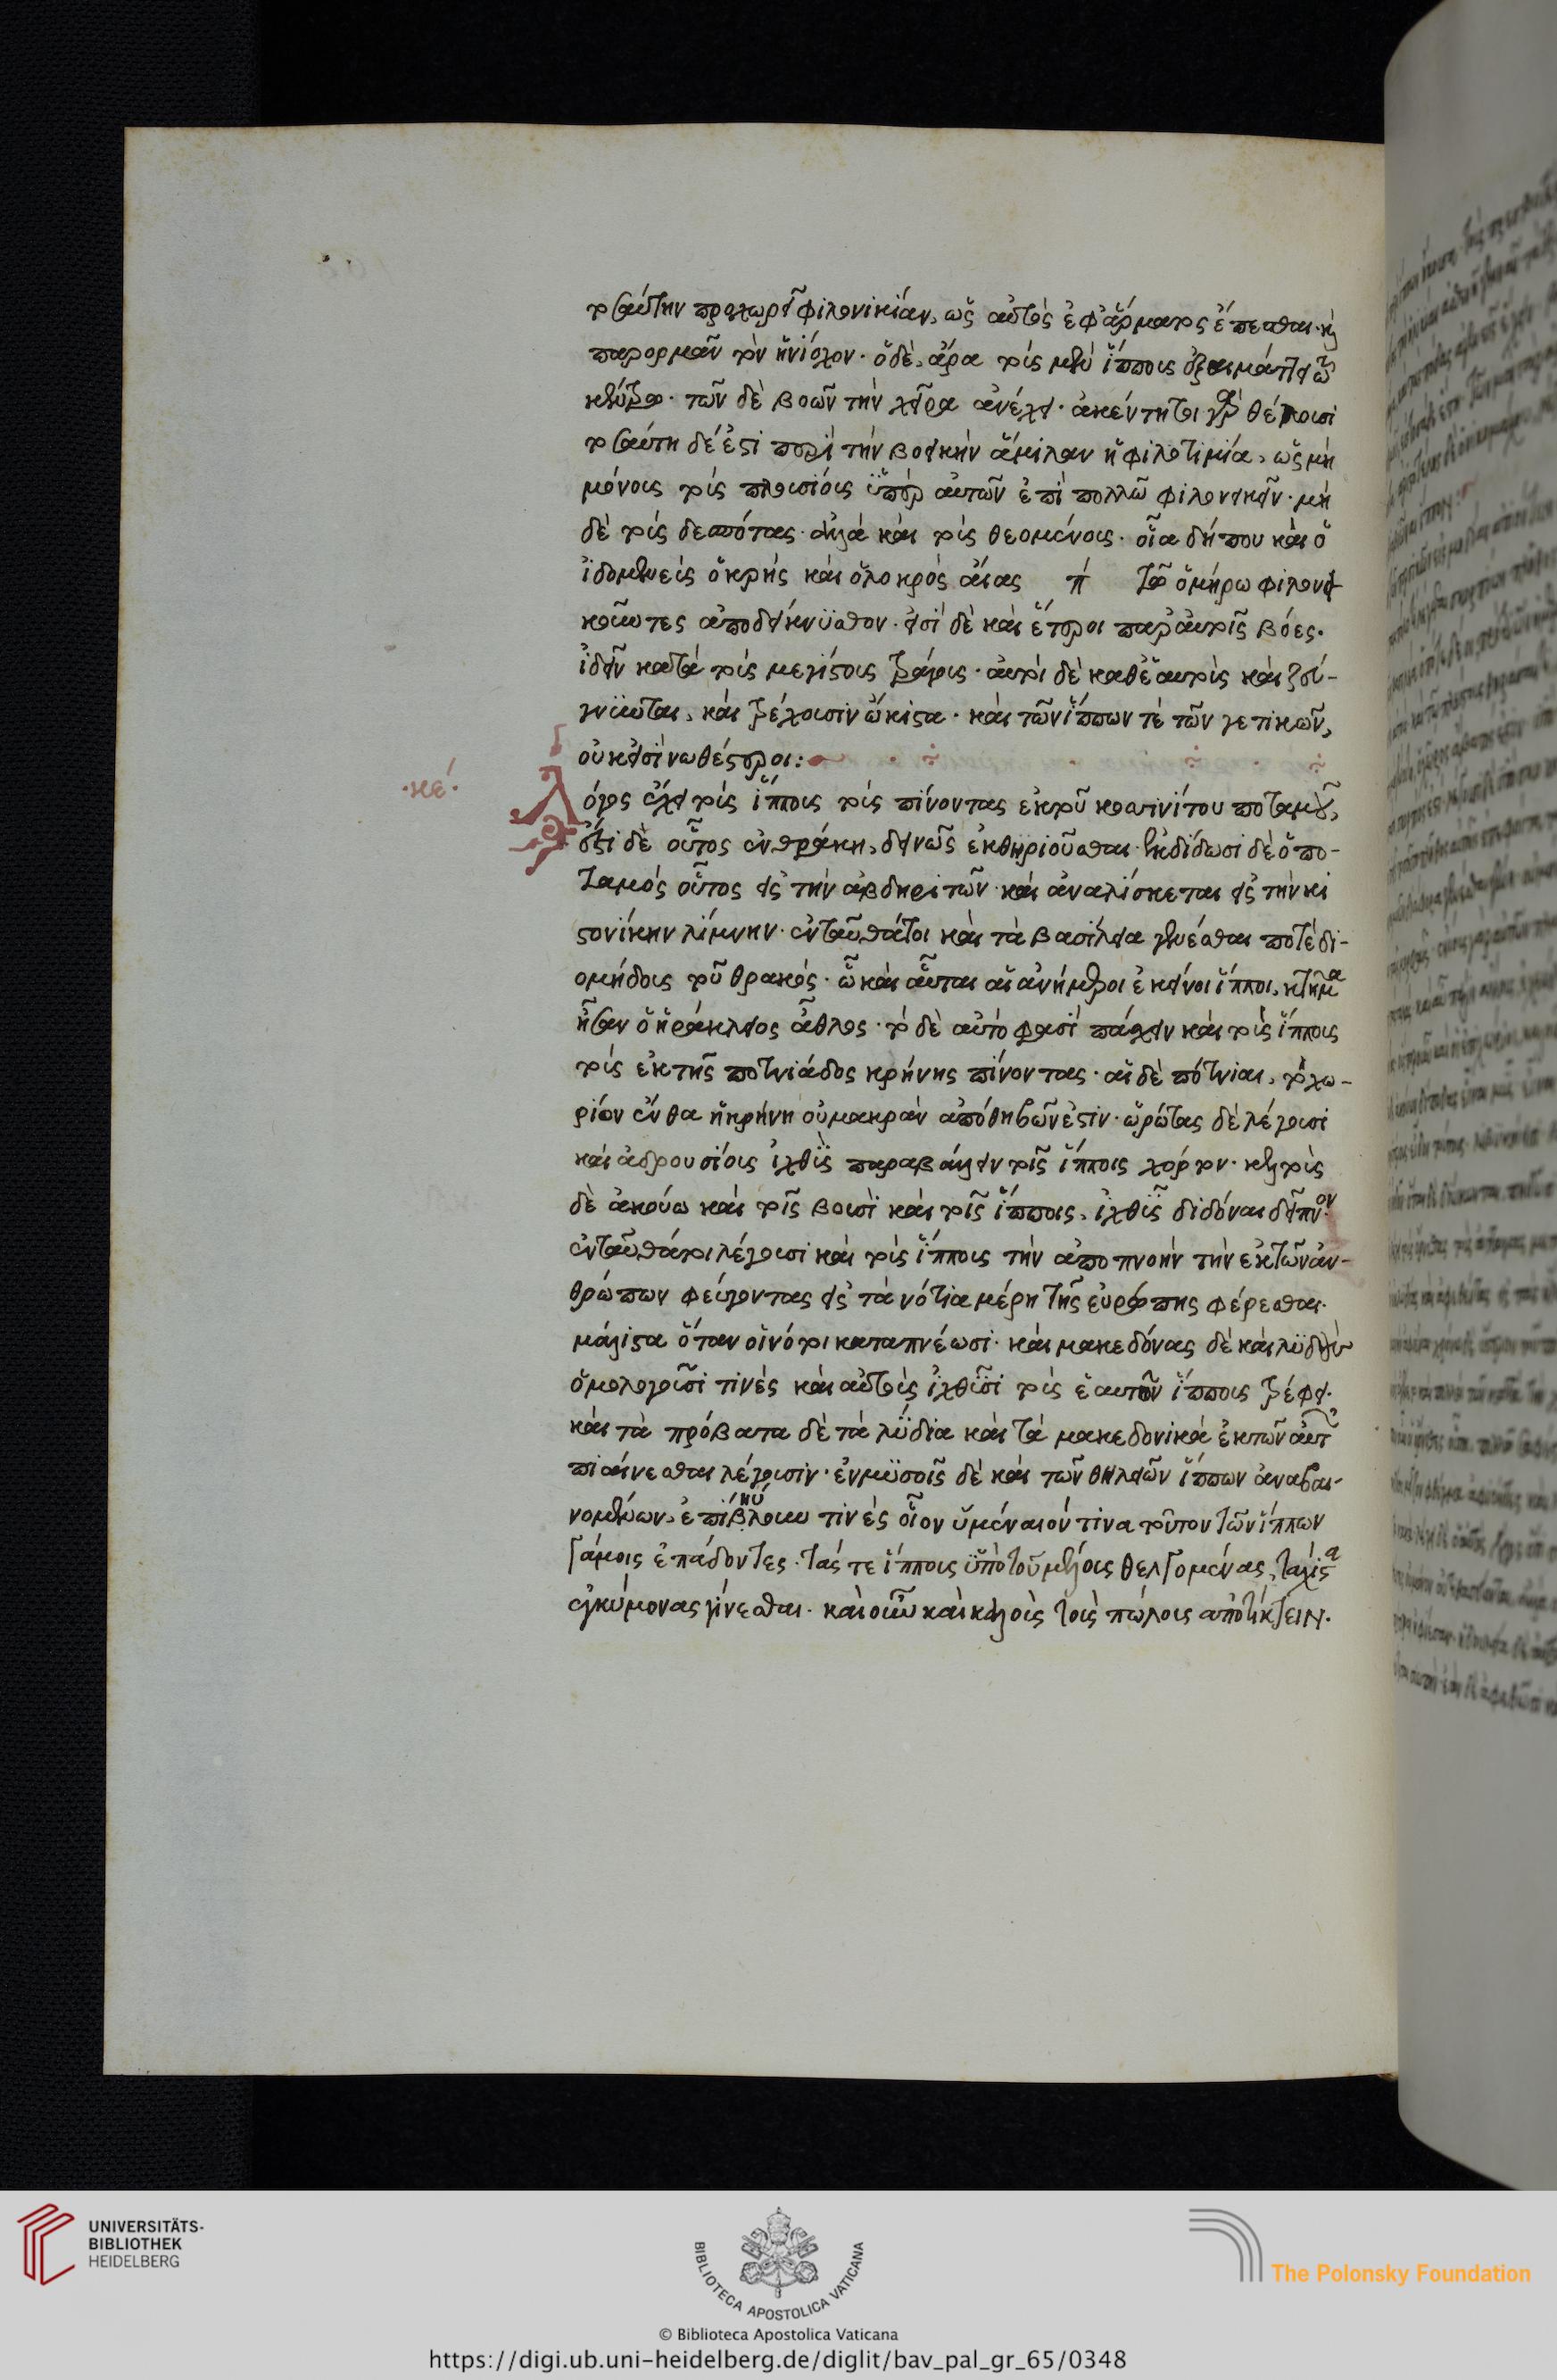 τοσαύτην προχωρεῖ φιλονικίαν, ὡς αὐτὸς ἐφ' ἅρματος ἕπεσθαι· καὶ
παρορμᾶν τὸν ἡνίοχον· ὁ δὲ ἄρα τοὺς μὲν ἵππους ἐξαιμάττει τῷ
κέντρῳ· τῶν δὲ βοῶν τὴν χεῖρα ἀνέχει· ἀκέντητοι γὰρ θέουσι
τοσαύτη δέ ἐστι περὶ τὴν βοεικὴν ἅμιλλαν ἡ φιλοτιμία, ὡς μὴ
μόνους τοὺς πλουσίους ὑπὲρ αὐτῶν ἐπὶ πολλῷ φιλονεικεῖν· μὴ
δὲ τοὺς δεσπότας· ἀλλὰ καὶ τοὺς θεομένους· οἷα δήπου καὶ ὁ
ἰδομενεὺς ὁ κρὴς καὶ ὁ λοκρὸς αἴας π τῷ ὁμήρω φιλονει
κοῦντες ἀποδείκνυσθον· εἰσὶ δὲ καὶ ἕτεροι παρ' αὐτοῖς βόες·
ἰδεῖν κατὰ τοὺς μεγίστους τράγους· αὐτοὶ δὲ καθ' ἑαυτοὺς καὶ ζεύ-
γνυνται, καὶ τρέχουσιν ὤκιστα· καὶ τῶν ἵππων τὲ τῶν γετικῶν,
οὐκ εἰσὶ νωθέστεροι:
·κε·
Λόγος ἔχει τοὺς ἵππους τοὺς πίνοντας ἐκ τοῦ κοσινίτου ποταμοῦ,
ἔστι δὲ οὗτος ἐν θράκη, δεινῶς ἐκθηριοῦσθαι· ἐκδίδωσι δὲ ὁ πο-
ταμὸς οὗτος εἰς τὴν ἀβδηριτῶν· καὶ ἀναλίσκεται εἰς τὴν βι
στονίκην λίμνην· ἐνταῦθά τοι καὶ τὰ βασίλεια γενέσθαι ποτὲ δι-
ομήδους τοῦ θρακός· ὧ καὶ αὗται αἱ ἀνήμεροι ἐκεῖνοι ἵπποι, κτῆμα
ἦσαν ὁ ἡράκλειος ἆθλος· τὸ δὲ αὐτό φασι πάσχειν καὶ τοὺς ἵππους
τοὺς ἐκ τῆς ποτνιάδος κρήνης πίνοντας· αἱ δὲ πότνιαι, τὸ χω-
ρίον ἔνθα ἡ κρήνη οὐ μακρὰν ἀπὸ θηβῶν ἐστιν· ὠρίτας δὲ λέγουσι
καὶ ἀδρουσίους ἰχθῦς παραβάλλειν τοῖς ἵπποις χόρτον· κελτοὺς
δὲ ἀκούω καὶ τοῖς βουσὶ καὶ τοῖς ἵπποις, ἰχθῦς διδόναι δεῖπνον·
ἐνταῦθά τοι λέγουσι καὶ τοὺς ἵππους τὴν ἀποπνοὴν τὴν ἐκ τῶν ἀν-
θρώπων φεύγοντας εἰς τὰ νότια μέρη τῆς εὐρώπης φέρεσθαι·
μάλιστα ὅταν οἱ νότοι καταπνέωσι· καὶ μακεδόνας δὲ καὶ λυδοὺς
ὁμολογοῦσί τινὲς καὶ αὐτοὺς ἰχθύσι τοὺς ἑαυτῶν ἵππους τρέφει·
καὶ τὰ πρόβατα δὲ τὰ λύδια καὶ τὰ μακεδονικὰ ἐκ τῶν αὐτῶν
πιαίνεσθαι λέγουσιν· ἐν μυσοῖς δὲ καὶ τῶν θηλειῶν ἵππων ἀναβαι-
νομένων, ἐπηύλουν τινὲς οἷον ὑμέναιόν τινα τοῦτον τῶν ἵππων
γάμοις ἐπᾴδοντες· τάς τε ἵππους ὑπὸ τοῦ μέλους θελγομένας, τάχιστα
ἐγκύμονας γίνεσθαι· καὶ οὖν καὶ καλοὺς τοὺς πώλους ἀποτίκτειν·
UNIVERSITÄTS-
BIBLIOTHEK
HEIDELBERG
BIBLIOTECA APOSTOLICA VATICANA
The Polonsky Foundation
© Biblioteca Apostolica Vaticana
https://digi.ub.uni-heidelberg.de/diglit/bav_pal_gr_65/0348